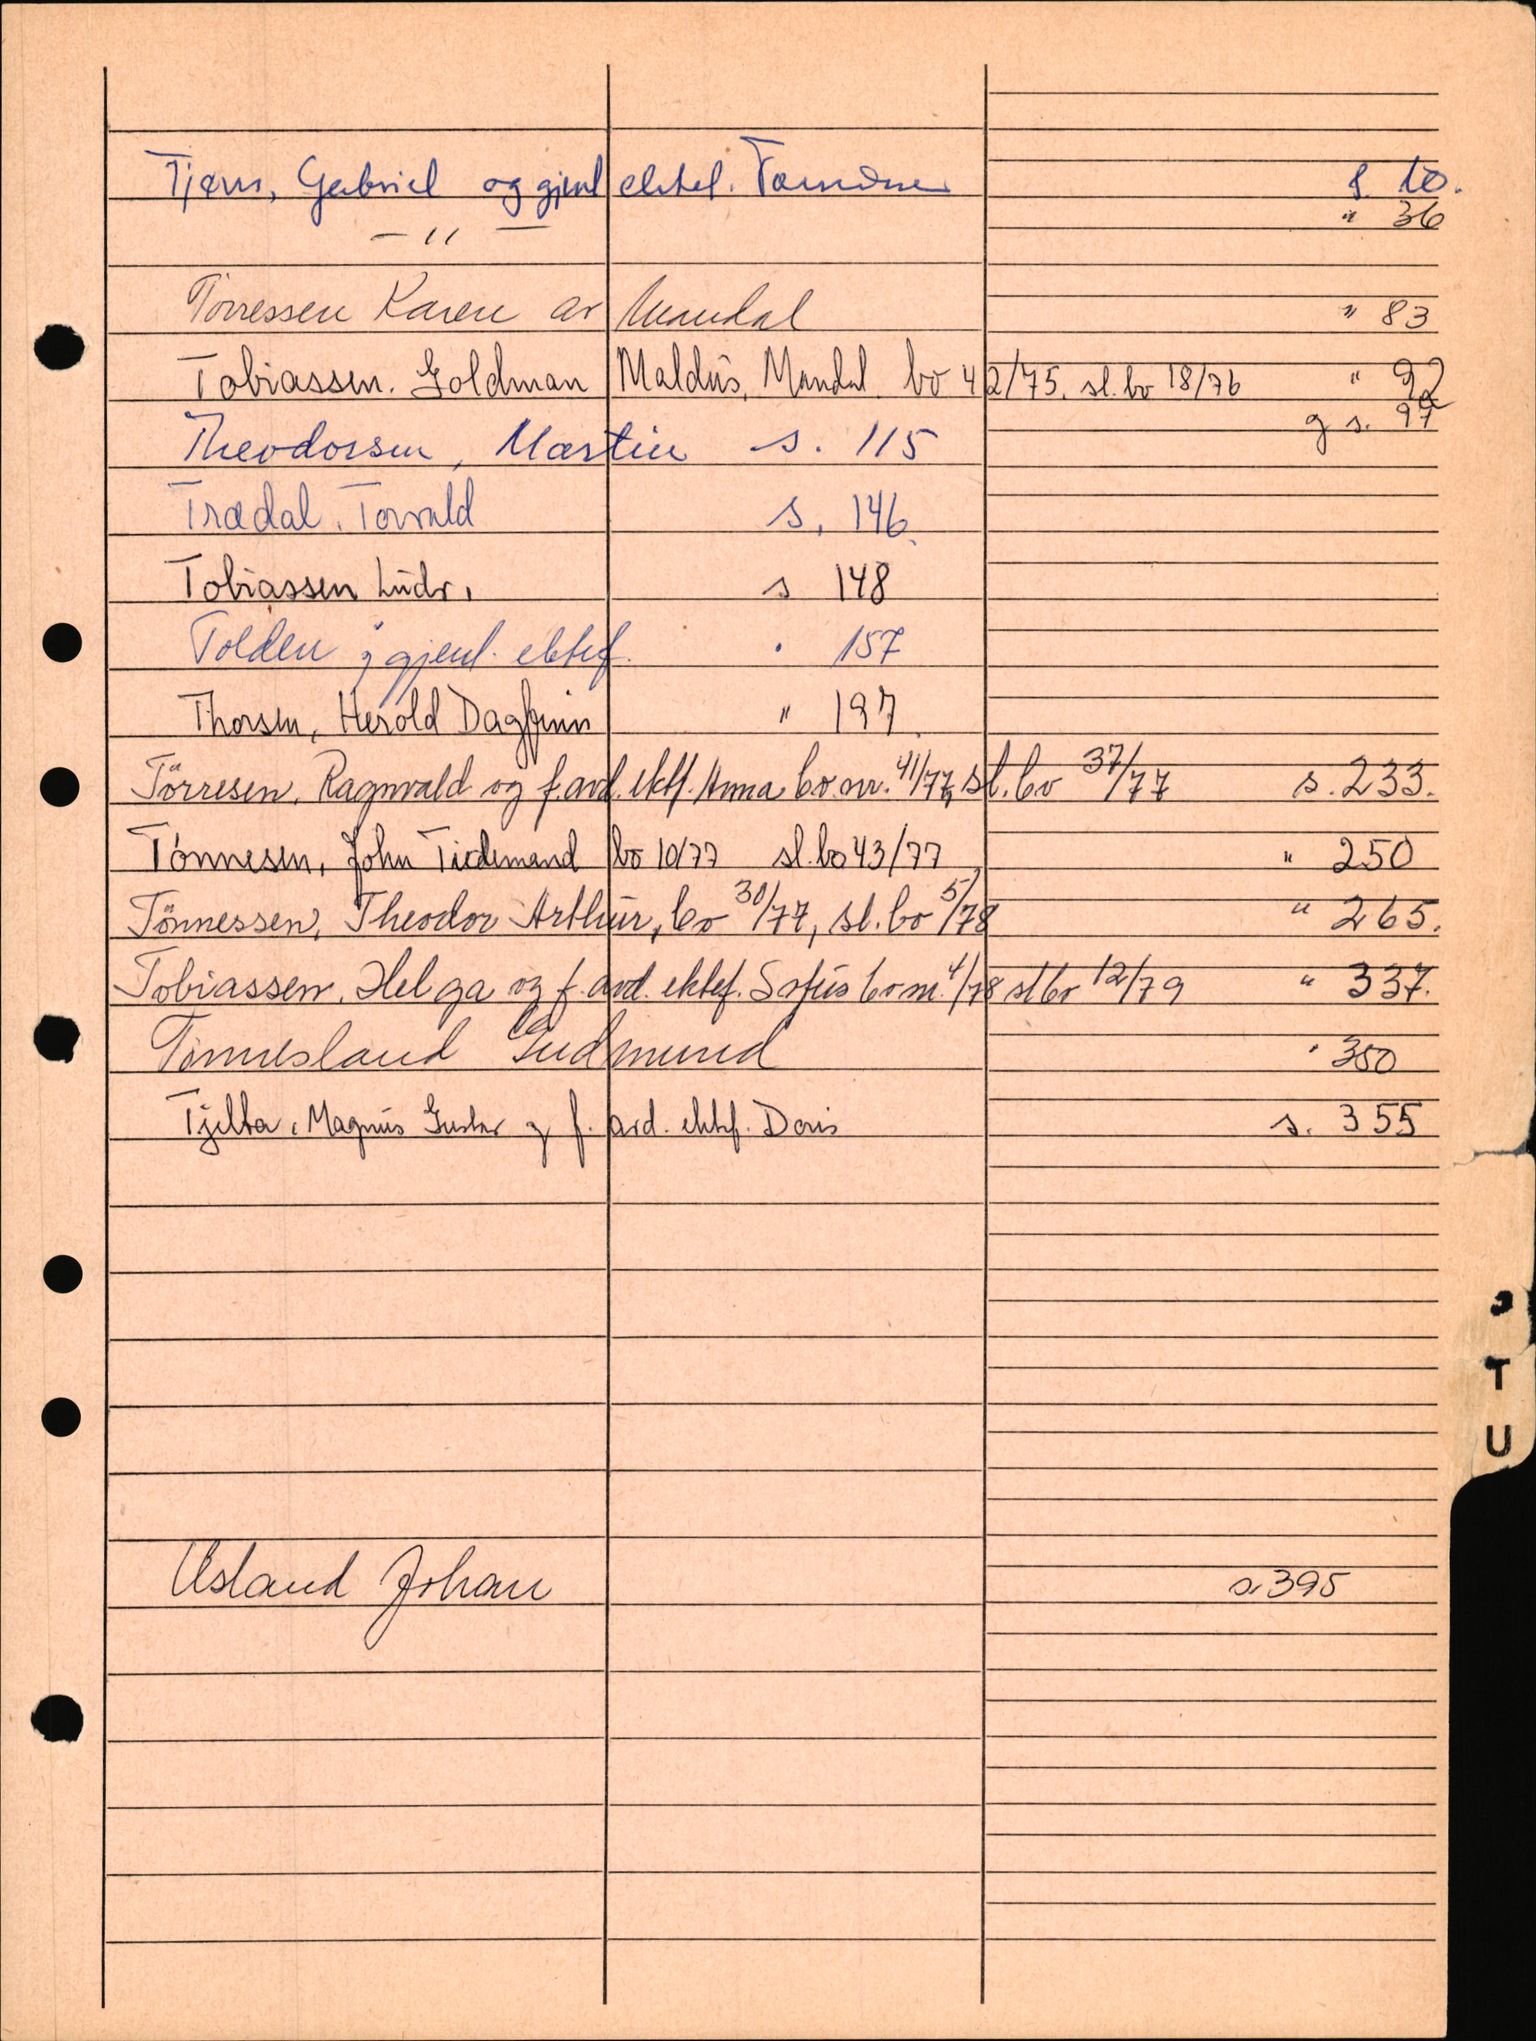 Tjøm, Gabriel og gjenl ektef. s. 10.
— " — " 36
Tørressen Karen av Mandal " 83
Tobiassen. Goldman Maldus, Mandal. bo 42/75. sl. bo 18/76 " 92
g s. 97
Theodorsen, Martin s. 115
Trædal. Torvald s. 146.
Tobiassen Ludv. s 148
Tolden og gjenl. ektef. " 157
Thorsen, Herold Dagfinn " 197.
Törresen, Ragnvald og f.avd. ektf. Anna bo nr. 41/77, sl. bo 37/77 s. 233.
Tónnesen, John Tidemand bo 10/77 sl. bo 43/77 " 250
Tönnessen, Theodor Arthur, bo 30/77, sl. bo 5/78 " 265.
Tobiassen, Helga og f. avd. ektef. Sofus bo nr. 4/78 sl bo 12/79 " 337.
Tønnesland Gudmund " 350
Tjelta, Magnus Gustav og f. avd. ektef. Doris s. 355
T
U
Usland Johan s 395